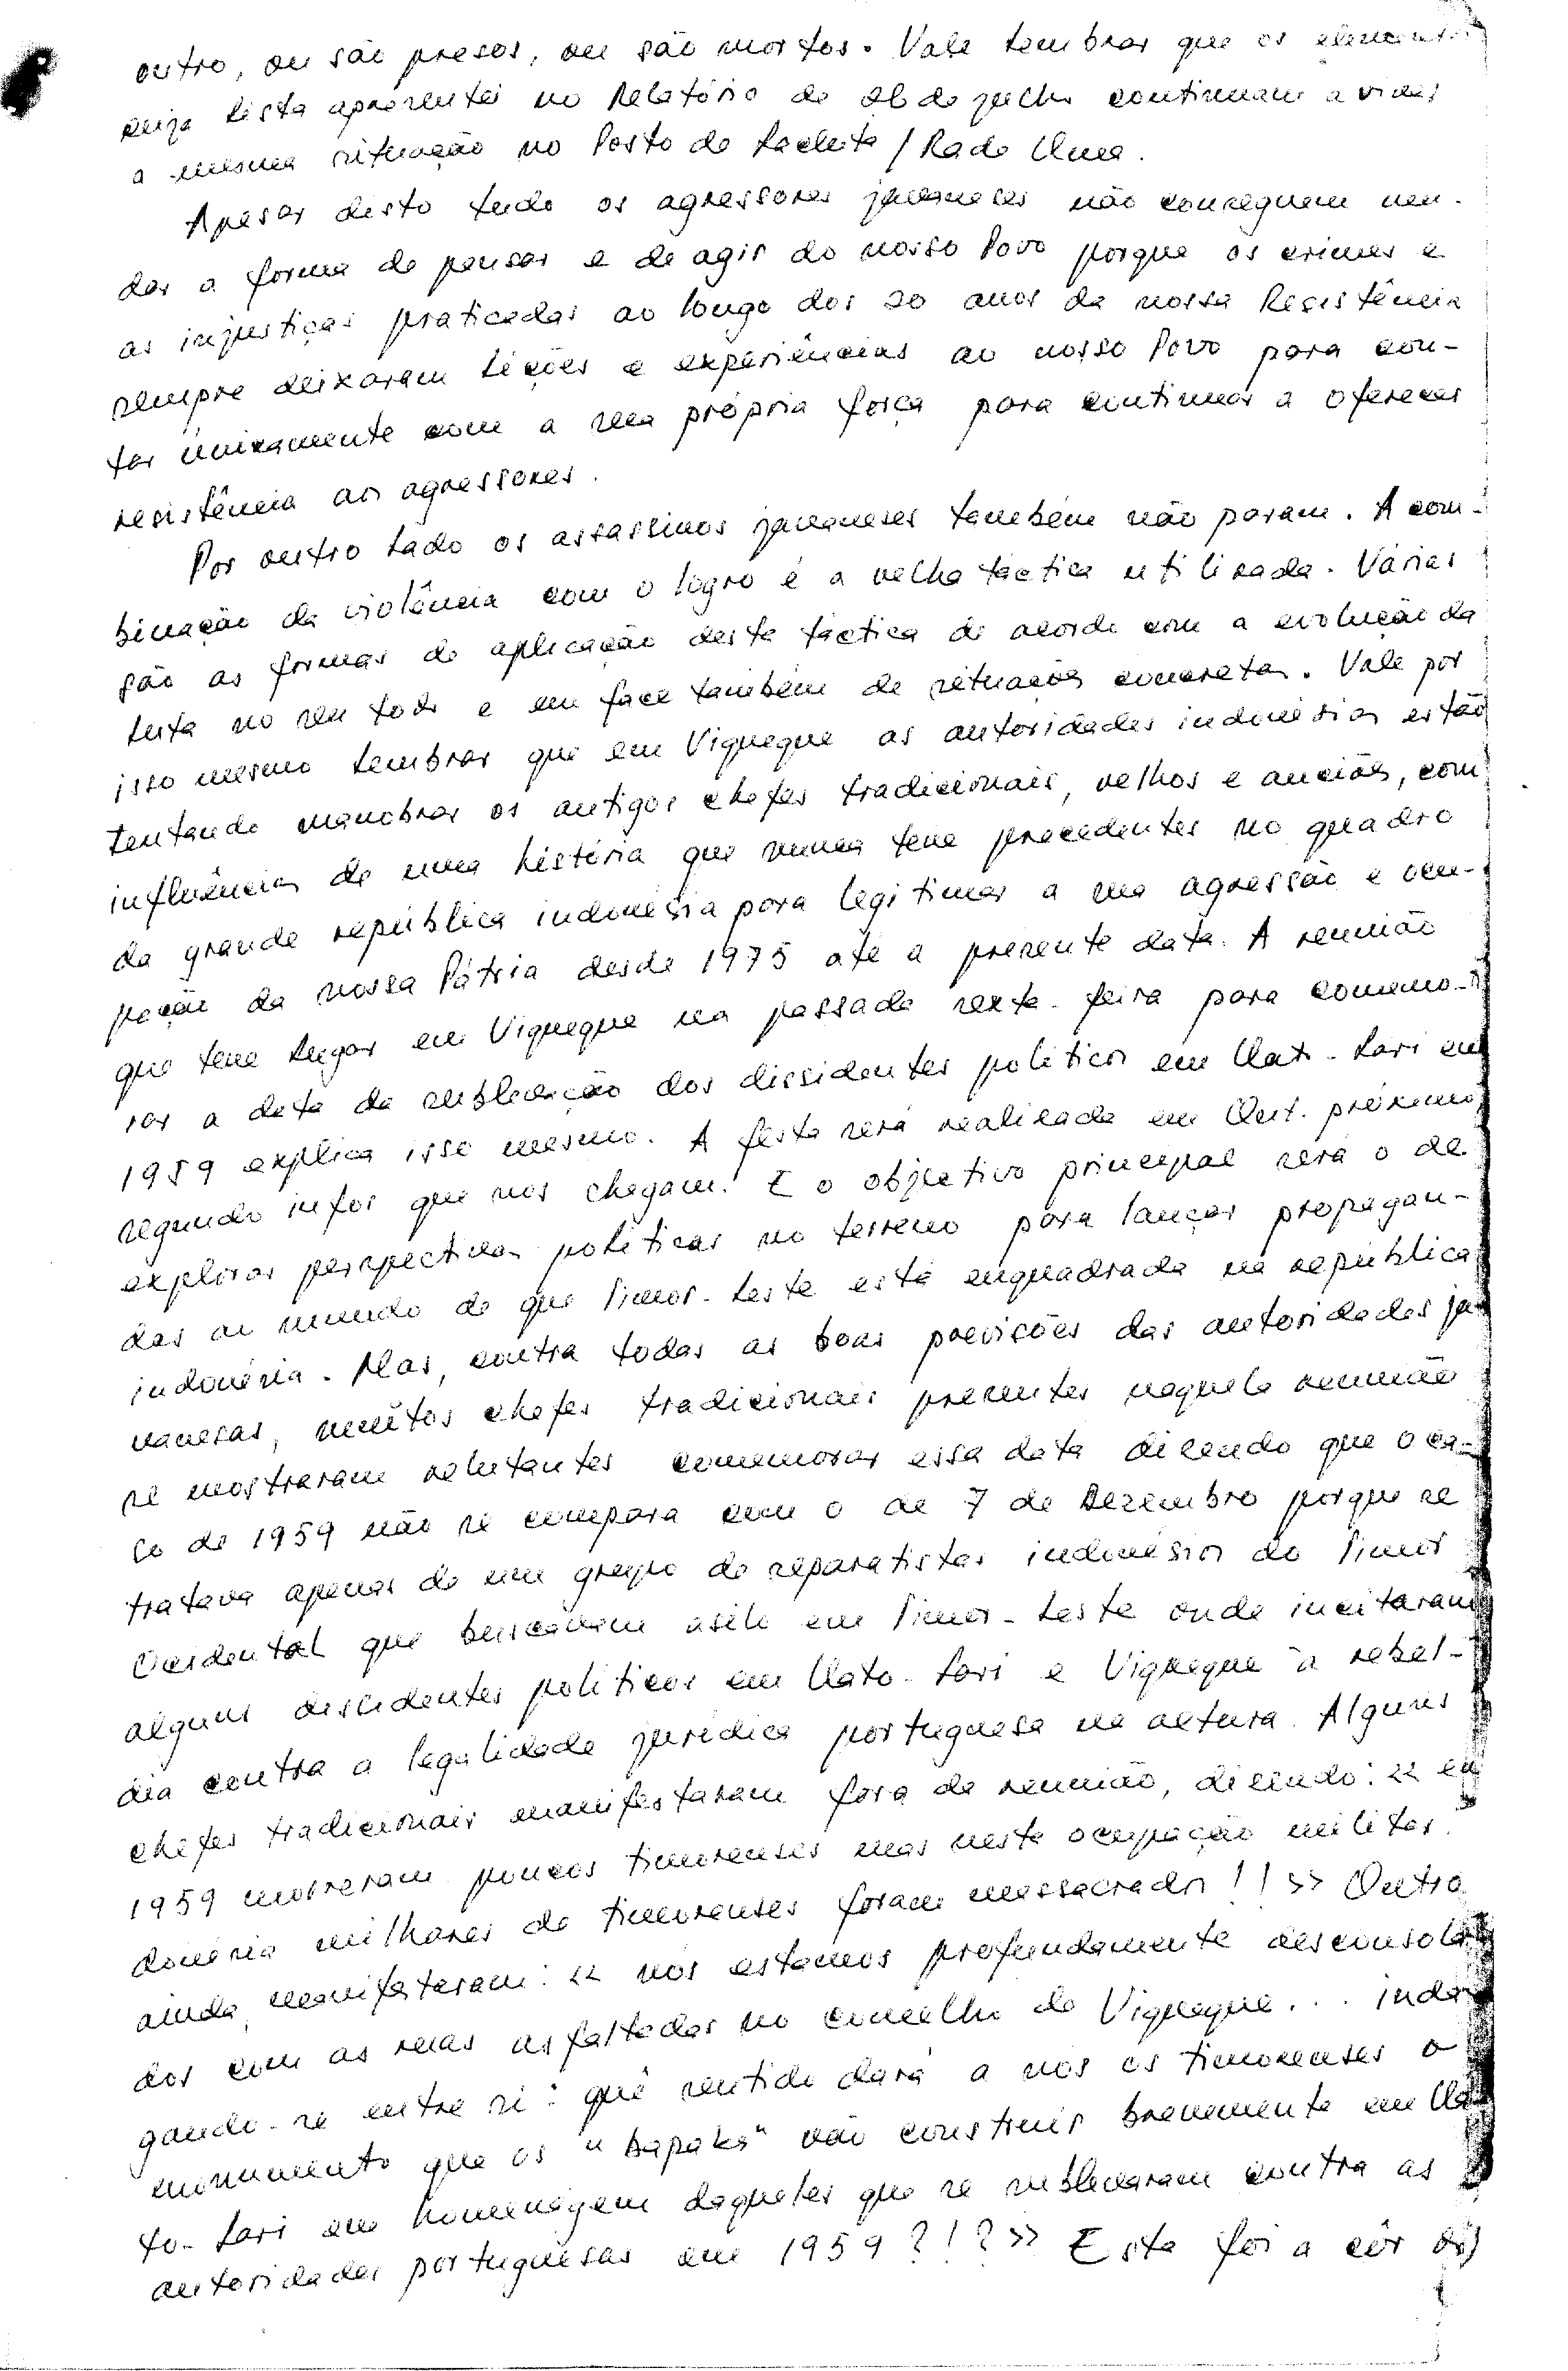 outro, ou são presos, ou são mortos. Vale lembrar que os elementos
cuja lista apresentei no Relatório de 26 de julho continuam a viver
a mesma situação no Posto de Lacluta / Rade Uma.
Apesar disto tudo os agressores javaneses não conseguem mu-
dar a forma de pensar e de agir do nosso Povo porque os crimes e
as injustiças praticadas ao longo dos 20 anos da nossa Resistência
sempre deixaram lições e experiências ao nosso Povo para con-
tar únicamente com a sua própria força para continuar a oferecer
resistência aos agressores.
Por outro lado os assassinos javaneses também não param. A com-
binação da violência com o logro é a velha táctica utilizada. Várias
são as formas de aplicação desta táctica de acordo com a evolução da
luta no seu todo e em face também de situações concretas. Vale por
isso mesmo lembrar que em Viqueque as autoridades indonésias estão
tentando manobrar os antigos chefes tradicionais, velhos e anciões, com
influências de uma história que nunca teve precedentes no quadro
da grande república indonésia para legitimar a sua agressão e ocu-
pação da nossa Pátria desde 1975 até a presente data. A reunião
que teve lugar em Viqueque na passada sexta-feira para comemo-
rar a data da sublevação dos dissidentes políticos em Uato-Lari em
1959 explica isso mesmo. A festa será realizada em Out. próximo,
segundo infos que nos chegam. E o objectivo principal será o de
explorar perspectivas políticas no terreno para lançar propagan-
das ao mundo de que Timor-Leste está enquadrada na república
indonésia. Mas, contra todas as boas previsões das autoridades ja-
vanesas, muitos chefes tradicionais presentes naquela reunião
se mostraram relutantes comemorar essa data dizendo que o ca-
so de 1959 não se compara com o de 7 de Dezembro porque se
tratava apenas de um grupo de separatistas indonésios do Timor
Ocidental que buscavam asilo em Timor-Leste onde incitaram
alguns dissidentes políticos em Uato-Lari e Viqueque à rebel-
dia contra a legalidade jurídica portuguesa na altura. Alguns
chefes tradicionais manifestaram fora da reunião, dizendo: << em
1959 morreram poucos timorenses mas nesta ocupação militar
donésia milhares de timorenses foram massacrados!! >> Outro
ainda manifestaram: << nós estamos profundamente desconsola-
dos com as ruas asfaltadas no concelho de Viqueque... inda-
gando-se entre si: quê sentido dará a nós os timorenses o
monumento que os "bapaks" vão construir brevemente em Ua-
to-Lari em homenagem daqueles que se sublevaram contra as
autoridades portuguesas em 1959?!? >> Esta foi a côr